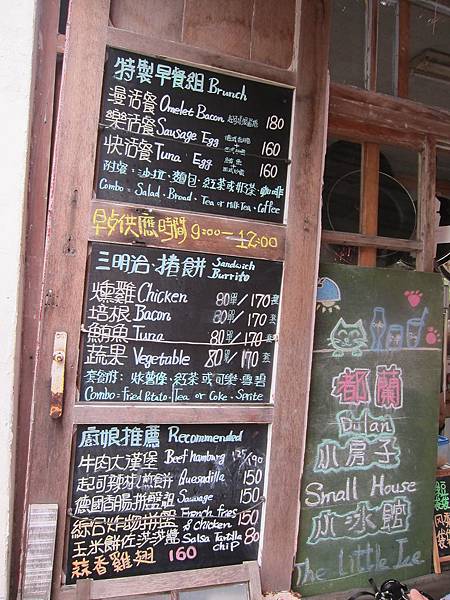 特製早餐組 Brunch
漫活餐 Omelet Bacon 180
樂活餐 Sausage Egg 160
快活餐 Tuna Egg 160
附餐:沙拉·麵包·紅茶或奶茶·咖啡
Combo = Salad · Bread · Tea or Milk Tea · Coffee
早点供應時間 9:00—12:00
三明治·捲餅 Sandwich Burrito
燻雞 Chicken 80單/170套
培根 Bacon 80單/170套
鮪魚 Tuna 80單/170套
蔬果 Vegetable 80單/170套
套餐附:炸薯座·紅茶或可樂·雪碧
Combo = Fried Potato · Tea or Coke · Sprite
廚娘推薦 Recommended
牛肉大漢堡 Beef Hamburg 125/190
起司辣妹煎餅 Quesadilla 150
德國香腸拼盤 Sausage 150
綜合炸物拼盤 French fries & chicken 150
玉米餅佐莎莎醬 Salsa Tortilla chip 80
蒜香雞翅 160
都蘭
Dulan
小房子
Small House
小冰館
The little Ice